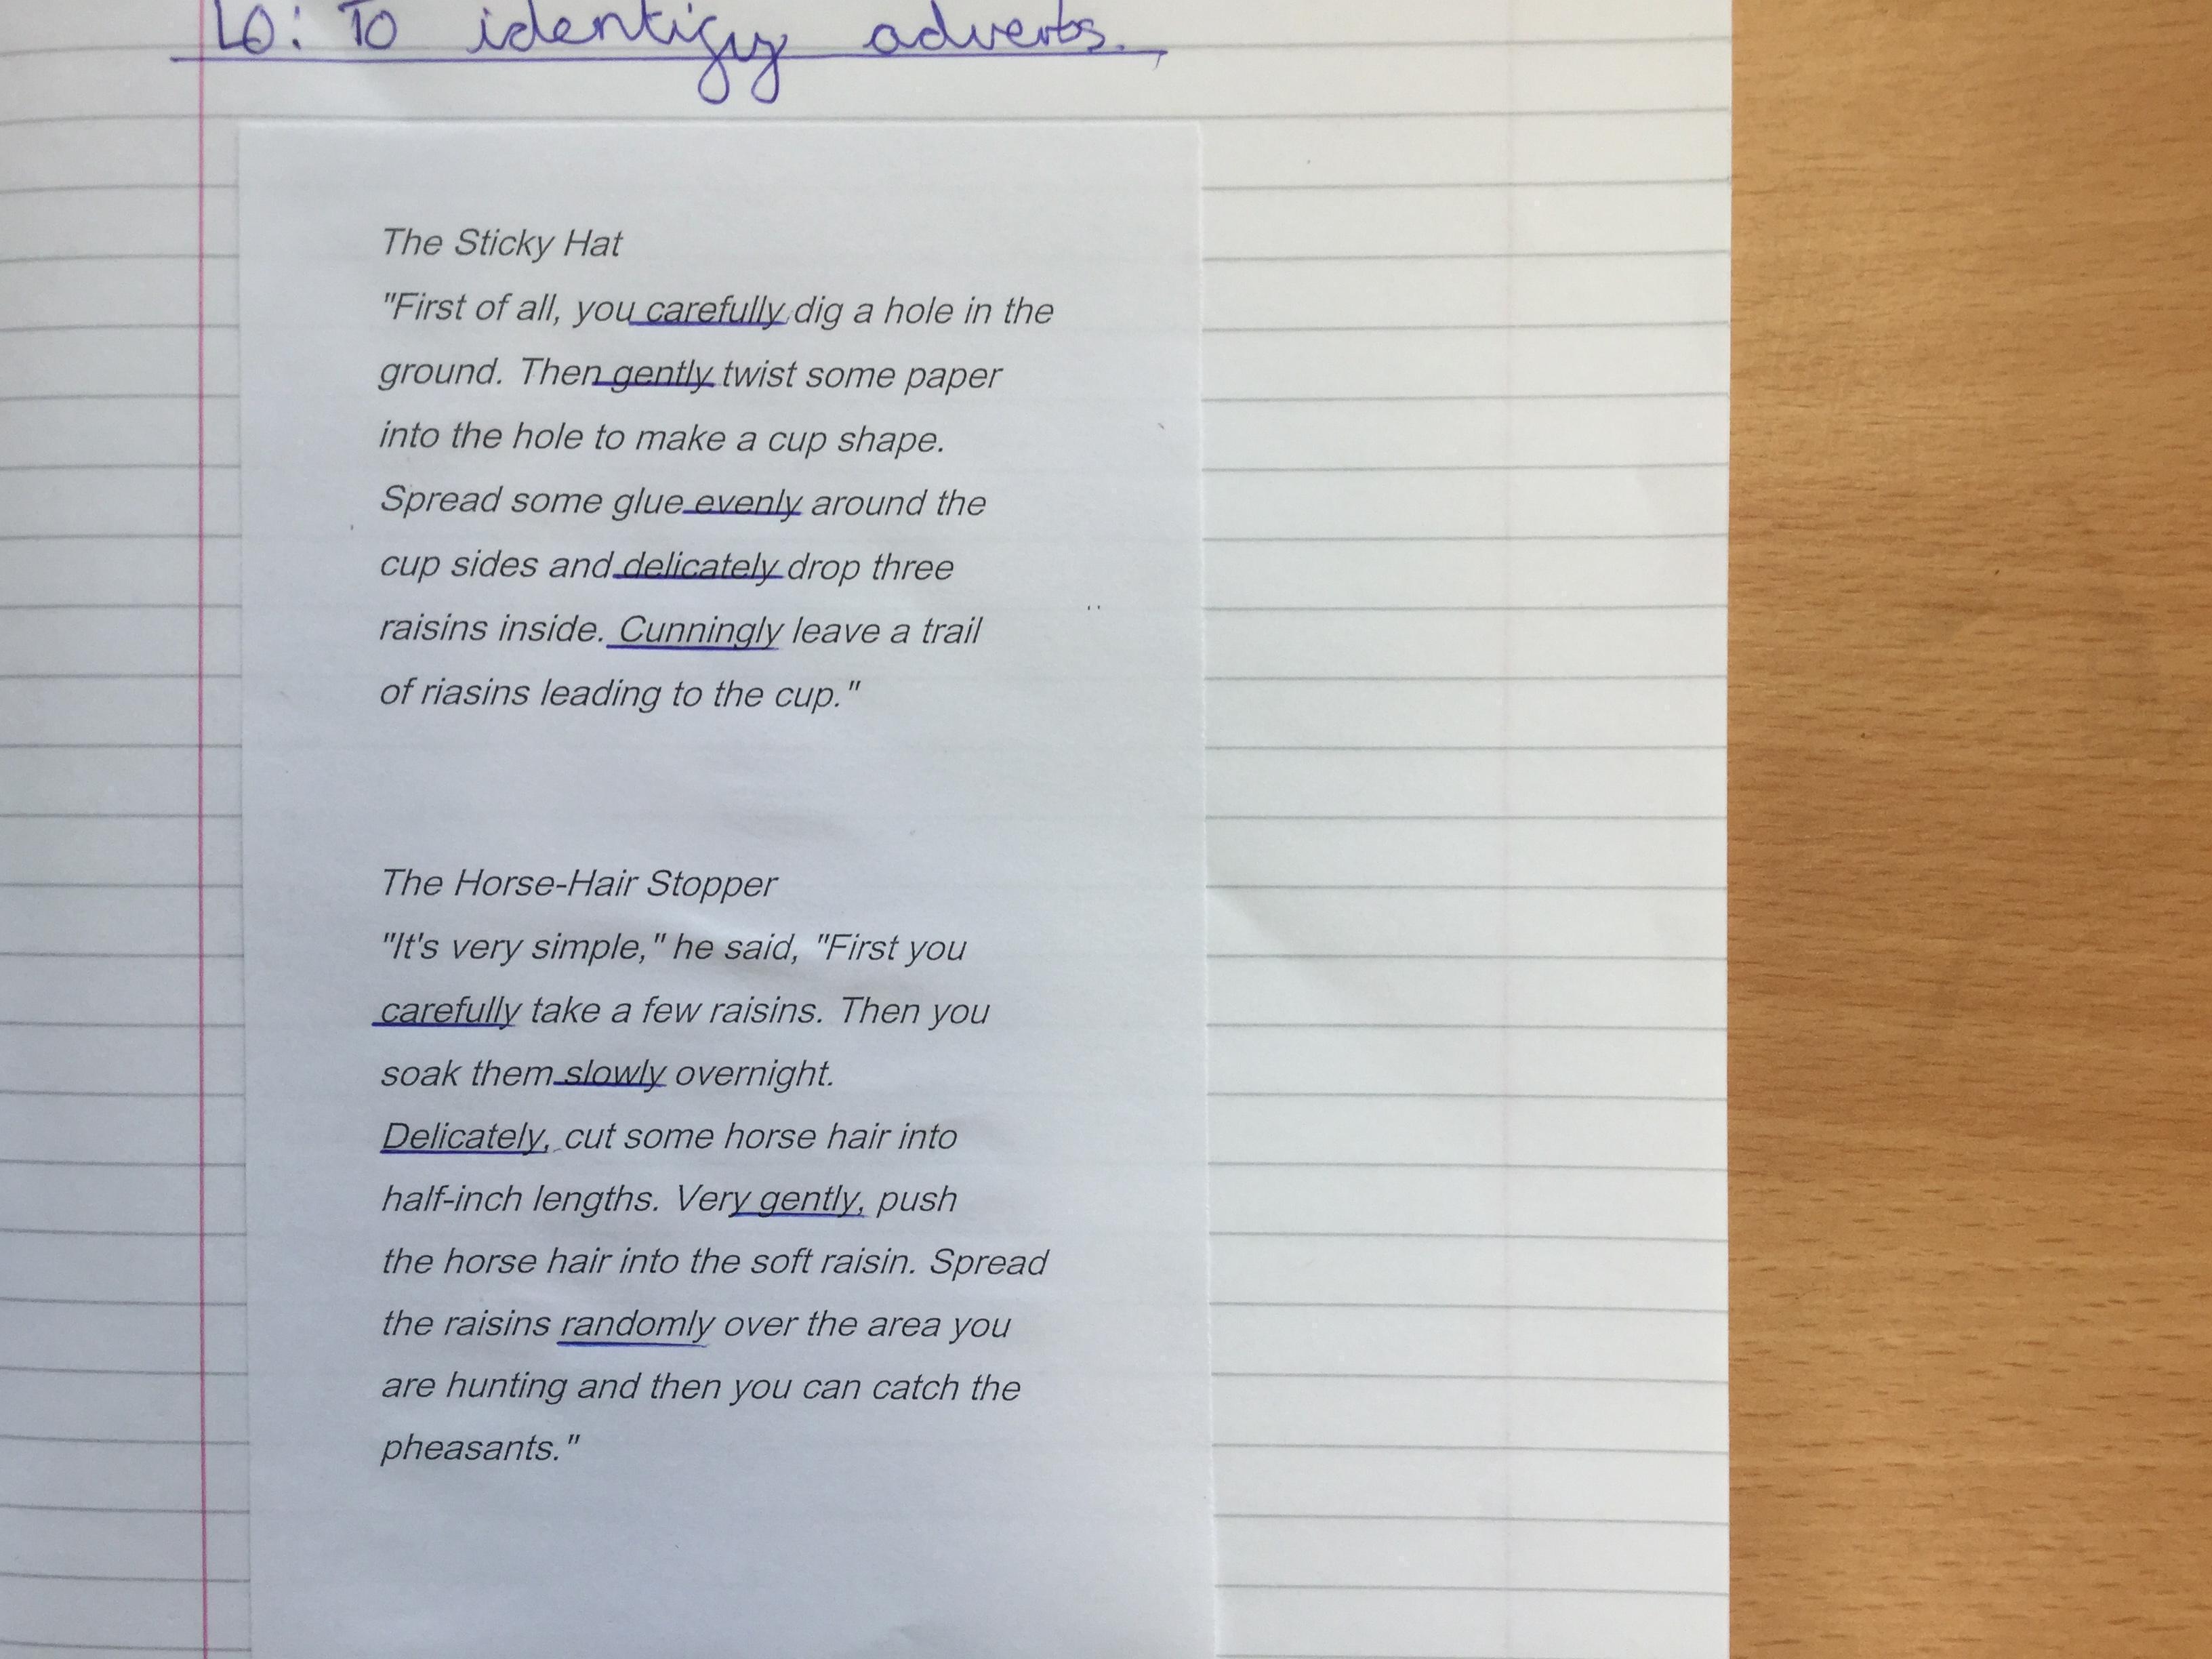 LO: To identify adverbs.
The Sticky Hat
"First of all, you carefully dig a hole in the
ground. Then gently twist some paper
into the hole to make a cup shape.
Spread some glue evenly around the
cup sides and delicately drop three
raisins inside. Cunningly leave a trail
of riasins leading to the cup."
The Horse-Hair Stopper
"It's very simple," he said, "First you
carefully take a few raisins. Then you
soak them slowly overnight.
Delicately, cut some horse hair into
half-inch lengths. Very gently, push
the horse hair into the soft raisin. Spread
the raisins randomly over the area you
are hunting and then you can catch the
pheasants."